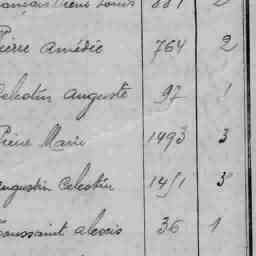 Pierre Amédée 764 2
Celestin Auguste 97 1
Pierre Marie 1493 3
Augustin Celestin 1451 3
Toussaint Alexis 36 1